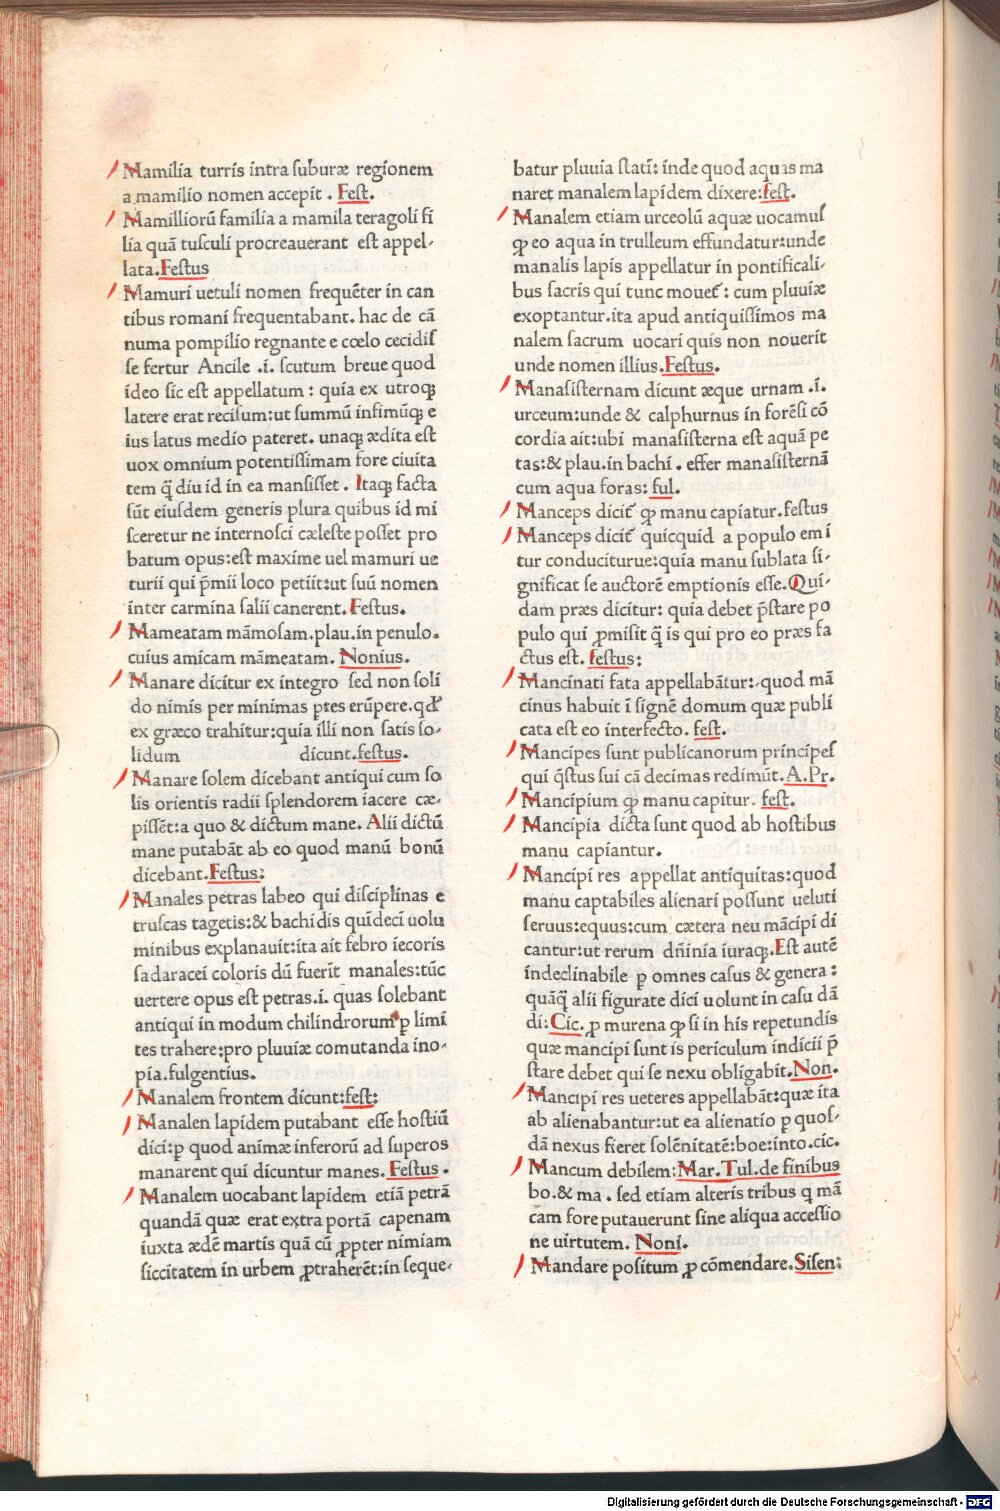 Mamilia turris intra suburæ regionem
a mamilio nomen accepit . Fest.
Mamilliorū familia a mamila teragoli fi
lia quā tusculi procreauerant est appel-
lata.Festus
Mamuri uetuli nomen frequēter in can
tibus romani frequentabant. hac de cā
numa pompilio regnante e cœlo cecidis
se fertur Ancile .i. scutum breue quod
ideo sic est appellatum : quia ex utroqꝫ
latere erat recisum:ut summū infimūqꝫ e
ius latus medio pateret. unaqꝫ ædita est
uox omnium potentissimam fore ciuita
tem q̄ diu id in ea mansisset . Itaqꝫ facta
sūt eiusdem generis plura quibus id mi
sceretur ne internosci cæleste posset pro
batum opus:est maxime uel mamuri ue
turii qui p̄mii loco petiit:ut suū nomen
inter carmina salii canerent. Festus.
Mameatam māmosam.plau.in penulo.
cuius amicam māmeatam. Nonius.
Manare dicitur ex integro sed non soli
do nimis per minimas ꝑtes erūpere.qđ
ex græco trahitur:quia illi non satis so-
lidum dicunt.festus.
Manare solem dicebant antiqui cum so
lis orientis radii splendorem iacere cæ-
pissēt:a quo & dictum mane. Alii dictū
mane putabāt ab eo quod manū bonū
dicebant.Festus:
Manales petras labeo qui disciplinas e
truscas tagetis:& bachidis quideci uolu
minibus explanauit:ita ait febro iecoris
sadaracei coloris dū fuerit manales:tūc
uertere opus est petras.i. quas solebant
antiqui in modum chilindrorum ꝑ limi
tes trahere:pro pluuiæ comutanda ino-
pia.fulgentius.
Manalem frontem dicunt:fest:
Manalen lapidem putabant esse hostiū
dici:ꝑ quod animæ inferorū ad superos
manarent qui dicuntur manes. Festus .
Manalem uocabant lapidem etiā petrā
quandā quæ erat extra portā capenam
iuxta ædē martis quā cū ꝓpter nimiam
siccitatem in urbem ꝓtraherēt:in seque-
batur pluuia stati: inde quod aquas ma
naret manalem lapidem dixere:fest.
Manalem etiam urceolū aquæ uocamus
ꝙ eo aqua in trulleum effundatur:unde
manalis lapis appellatur in pontificali-
bus sacris qui tunc mouet᷑ : cum pluuiæ
exoptantur.ita apud antiquissimos ma
nalem sacrum uocari quis non nouerit
unde nomen illius.Festus.
Manasisternam dicunt æque urnam .i.
urceum:unde & calphurnus in forēsi cō
cordia ait:ubi manasisterna est aquā pe
tas:& plau.in bachi . effer manasisternā
cum aqua foras: ful.
Manceps dicit᷑ ꝙ manu capiatur.festus
Manceps dicit᷑ quicquid a populo emi
tur conduciturue:quia manu sublata si-
gnificat se auctorē emptionis esse.Qui-
dam præs dicitur: quia debet p̄stare po
pulo qui ꝓmisit q̄ is qui pro eo præs fa
ctus est. festus:
Mancinati fata appellabātur: quod mā
cinus habuit ī signē domum quæ publi
cata est eo interfecto. fest.
Mancipes sunt publicanorum principes
qui q̄stus sui cā decimas redimūt.A.Pr.
Mancipium ꝙ manu capitur. fest.
Mancipia dicta sunt quod ab hostibus
manu capiantur.
Mancipi res appellat antiquitas:quod
manu captabiles alienari possunt ueluti
seruus:equus:cum cætera neu mācipi di
cantur:ut rerum dn̄inia iuraqꝫ.Est autē
indeclinabile ꝑ omnes casus & genera :
quāq̄ alii figurate dici uolunt in casu dā
di: Cic. ꝑ murena ꝙ si in his repetundis
quæ mancipi sunt is periculum indicii p̄
stare debet qui se nexu obligabit.Non.
Mancipi res ueteres appellabāt:quæ ita
ab alienabantur:ut ea alienatio ꝑ quos-
dā nexus fieret solēnitatē:boe:into.cic.
Mancum debilem:Mar.Tul.de finibus
bo.& ma . sed etiam alteris tribus q̨ mā
cam fore putauerunt sine aliqua accessio
ne uirtutem. Noni.
Mandare positum ꝓ cōmendare.Sisen:
Digitalisierung gefördert durch die Deutsche Forschungsgemeinschaft - DFG